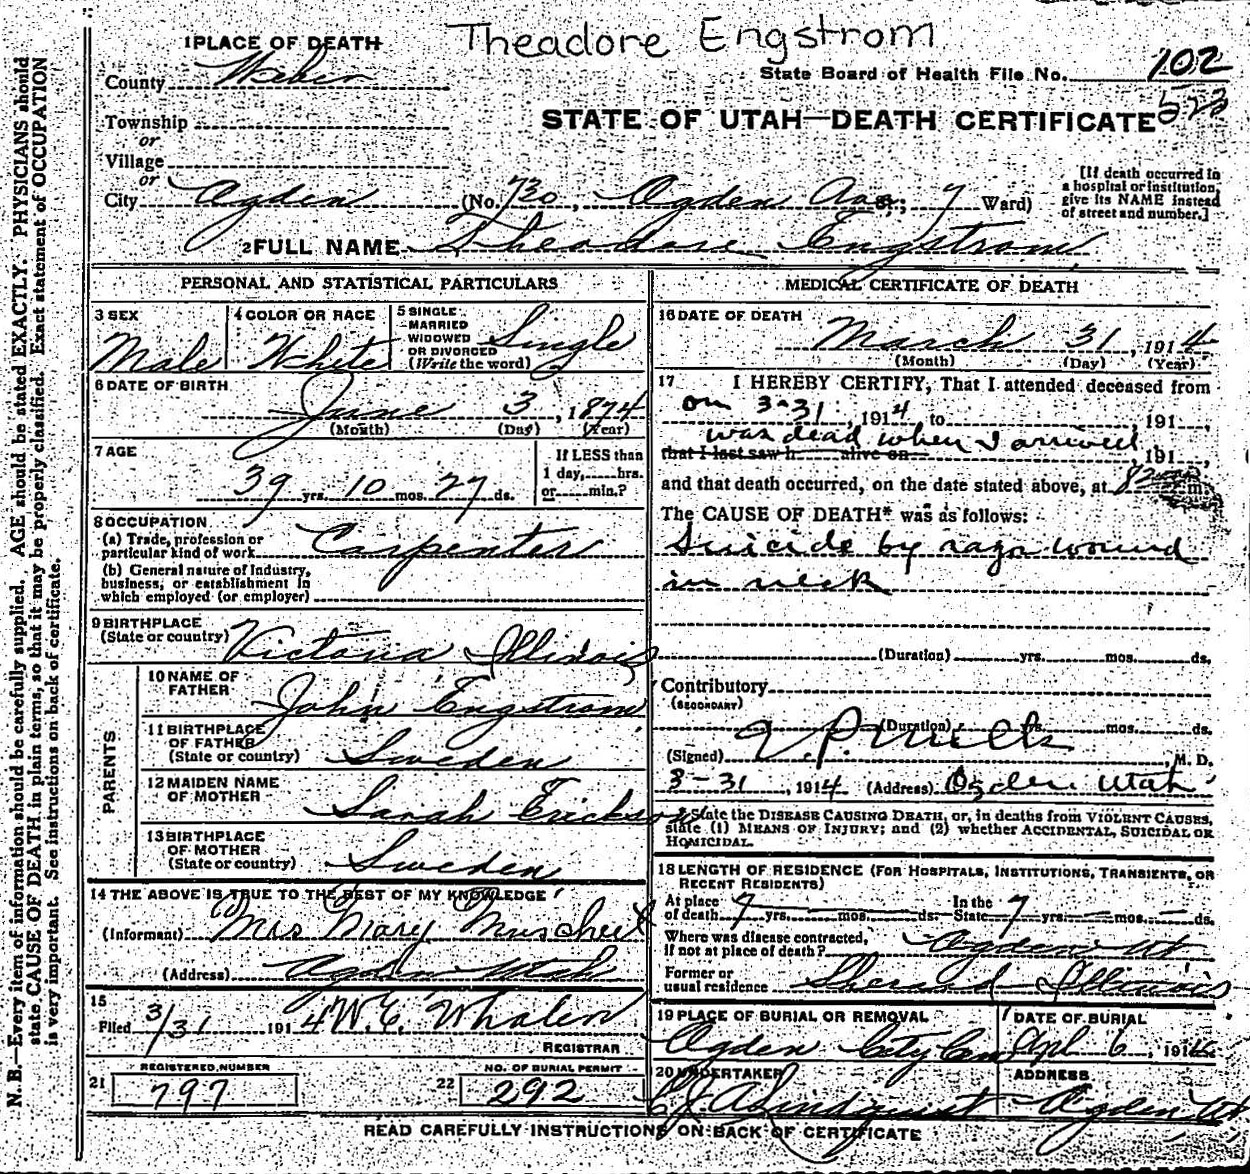 Theadore Engstrom
1 PLACE OF DEATH
County Weber
State Board of Health File No. 102
523
Township
or
Village
or
STATE OF UTAH—DEATH CERTIFICATE
City Ogden (No. 730, Ogden Ave St.; 7 Ward)
[If death occurred in a hospital or institution, give its NAME instead of street and number.]
2 FULL NAME Theodore Engstrom
PERSONAL AND STATISTICAL PARTICULARS
3 SEX Male
4 COLOR OR RACE White
5 SINGLE, MARRIED WIDOWED OR DIVORCED (Write the word) Single
6 DATE OF BIRTH
June 3, 1874
(Month) (Day) (Year)
7 AGE
39 yrs. 10 mos. 27 ds.
If LESS than 1 day, hrs. or min.?
8 OCCUPATION
(a) Trade, profession or particular kind of work Carpenter
(b) General nature of Industry, business, or establishment in which employed (or employer)
9 BIRTHPLACE
(State or country) Victoria Illinois
PARENTS
10 NAME OF FATHER John Engstrom
11 BIRTHPLACE OF FATHER (State or country) Sweden
12 MAIDEN NAME OF MOTHER Sarah Erickson
13 BIRTHPLACE OF MOTHER (State or country) Sweden
14 THE ABOVE IS TRUE TO THE BEST OF MY KNOWLEDGE
(Informant) Mrs Mary
(Address) Ogden Utah
15
Filed 3/31 1914 W. E. Whalen
REGISTRAR
REGISTERED NUMBER
21 797
NO. OF BURIAL PERMIT
22 292
MEDICAL CERTIFICATE OF DEATH
16 DATE OF DEATH
March 31, 1914
(Month) (Day) (Year)
17 I HEREBY CERTIFY, That I attended deceased from
on 3-31, 1914 to 191
was dead when I arrived
that I last saw h alive on , 191
and that death occurred, on the date stated above, at m.
The CAUSE OF DEATH* was as follows:
Suicide by razor wound
in neck
(Duration) yrs. mos. ds.
Contributory
(SECONDARY)
(Duration) yrs. mos. ds.
(Signed) Mills, M. D.
3-31, 1914 (Address) Ogden Utah
*State the DISEASE CAUSING DEATH, or, in deaths from VIOLENT CAUSES, state (1) MEANS OF INJURY; and (2) whether ACCIDENTAL, SUICIDAL OR HOMICIDAL.
18 LENGTH OF RESIDENCE (FOR HOSPITALS, INSTITUTIONS, TRANSIENTS, OR RECENT RESIDENTS)
At place of death 7 yrs. mos. ds. In the State 7 yrs. mos. ds.
Where was disease contracted, if not at place of death? Ogden Ut
Former or usual residence Illinois
19 PLACE OF BURIAL OR REMOVAL
Ogden City Cem
DATE OF BURIAL
Apl 6, 1914
20 UNDERTAKER
Lindquist
ADDRESS
Ogden Ut
READ CAREFULLY INSTRUCTIONS ON BACK OF CERTIFICATE
N. B.—Every item of information should be carefully supplied. AGE should be stated EXACTLY. PHYSICIANS should
state CAUSE OF DEATH in plain terms, so that it may be properly classified. Exact statement of OCCUPATION
is very important. See instructions on back of certificate.